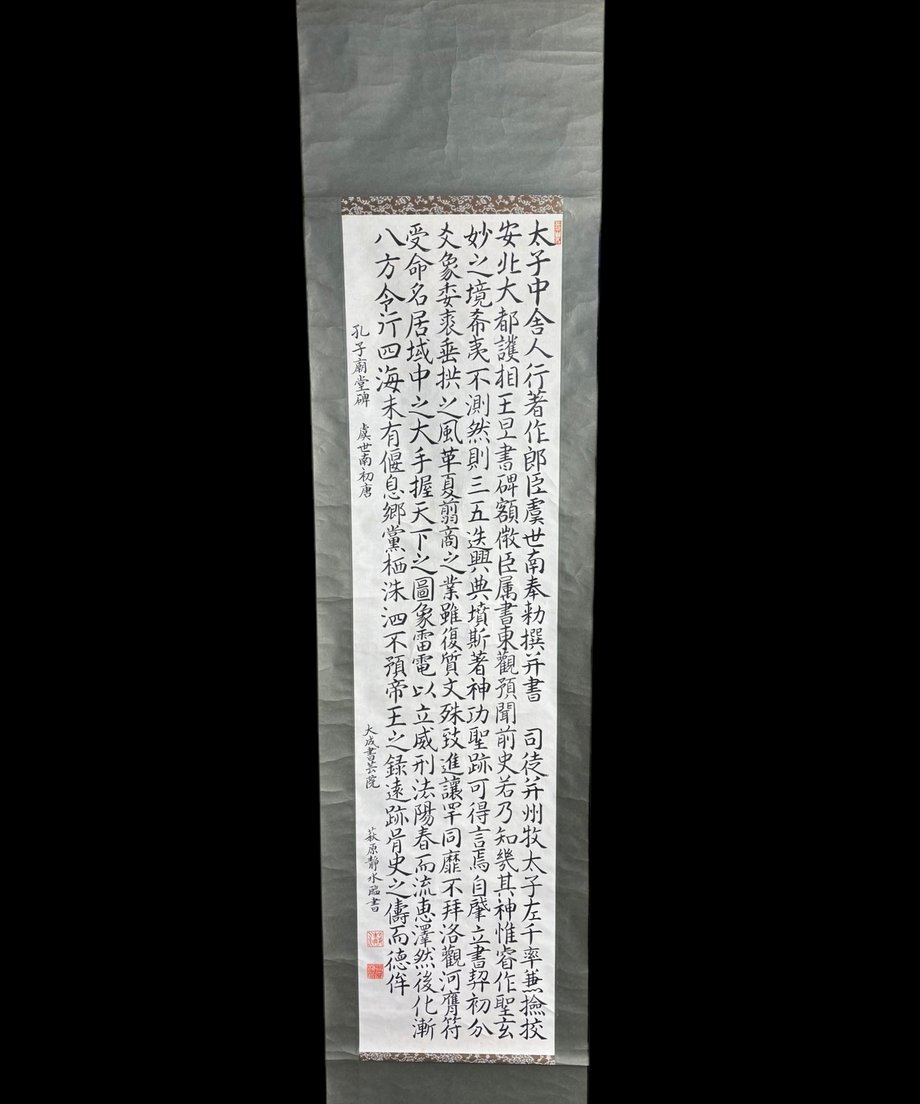 太子中舎人行著作郎臣虞世南奉勑撰并書　司徒并州牧太子左千率兼撿挍
安北大都護相王旦書碑額微臣属書東觀預聞前史若乃知幾其神惟睿作聖玄
妙之境希夷不測然則三五迭興典墳斯著神功聖跡可得言焉自肇立書契初分
爻象委裘垂拱之風革夏翦商之業雖復質文殊致進讓罕同靡不拜洛觀河膺符
受命名居域中之大手握天下之圖象雷電以立威刑法陽春而流惠澤然後化漸
八方令行四海未有偃息郷黨栖洙泗不預帝王之録遠跡胥史之儔而德侔
孔子廟堂碑　虞世南初唐
大成書芸院　萩原靜水臨書